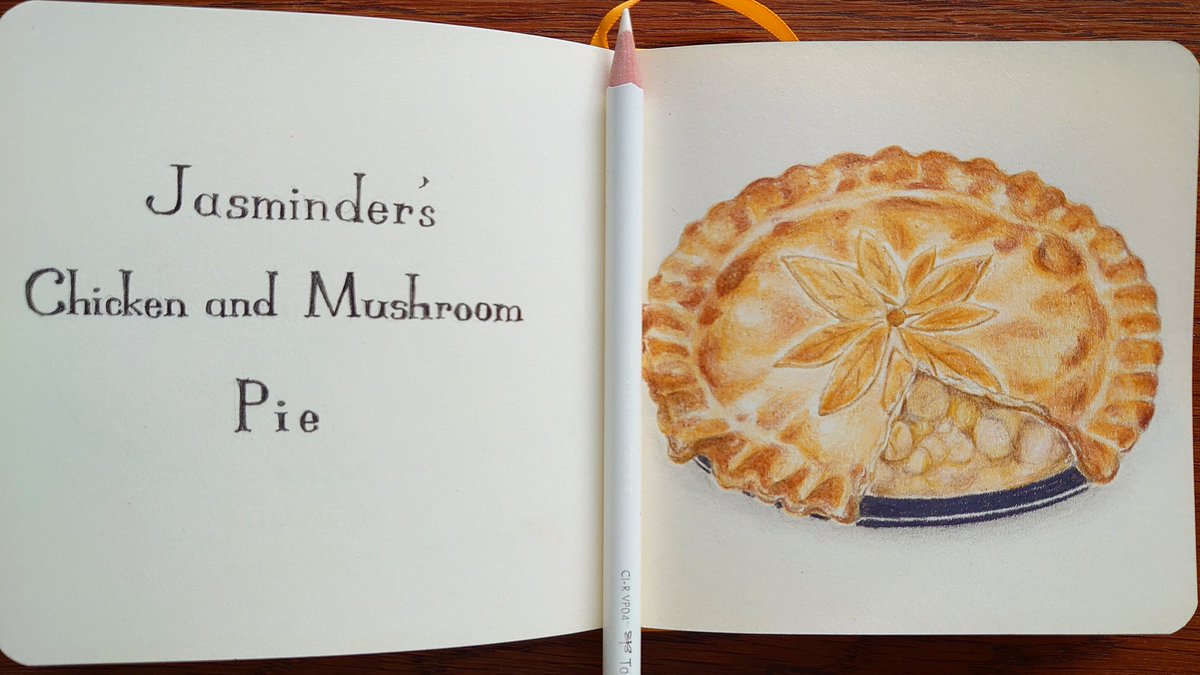 Jasminder's
Chicken and Mushroom
Pie
CI-R VP04
To